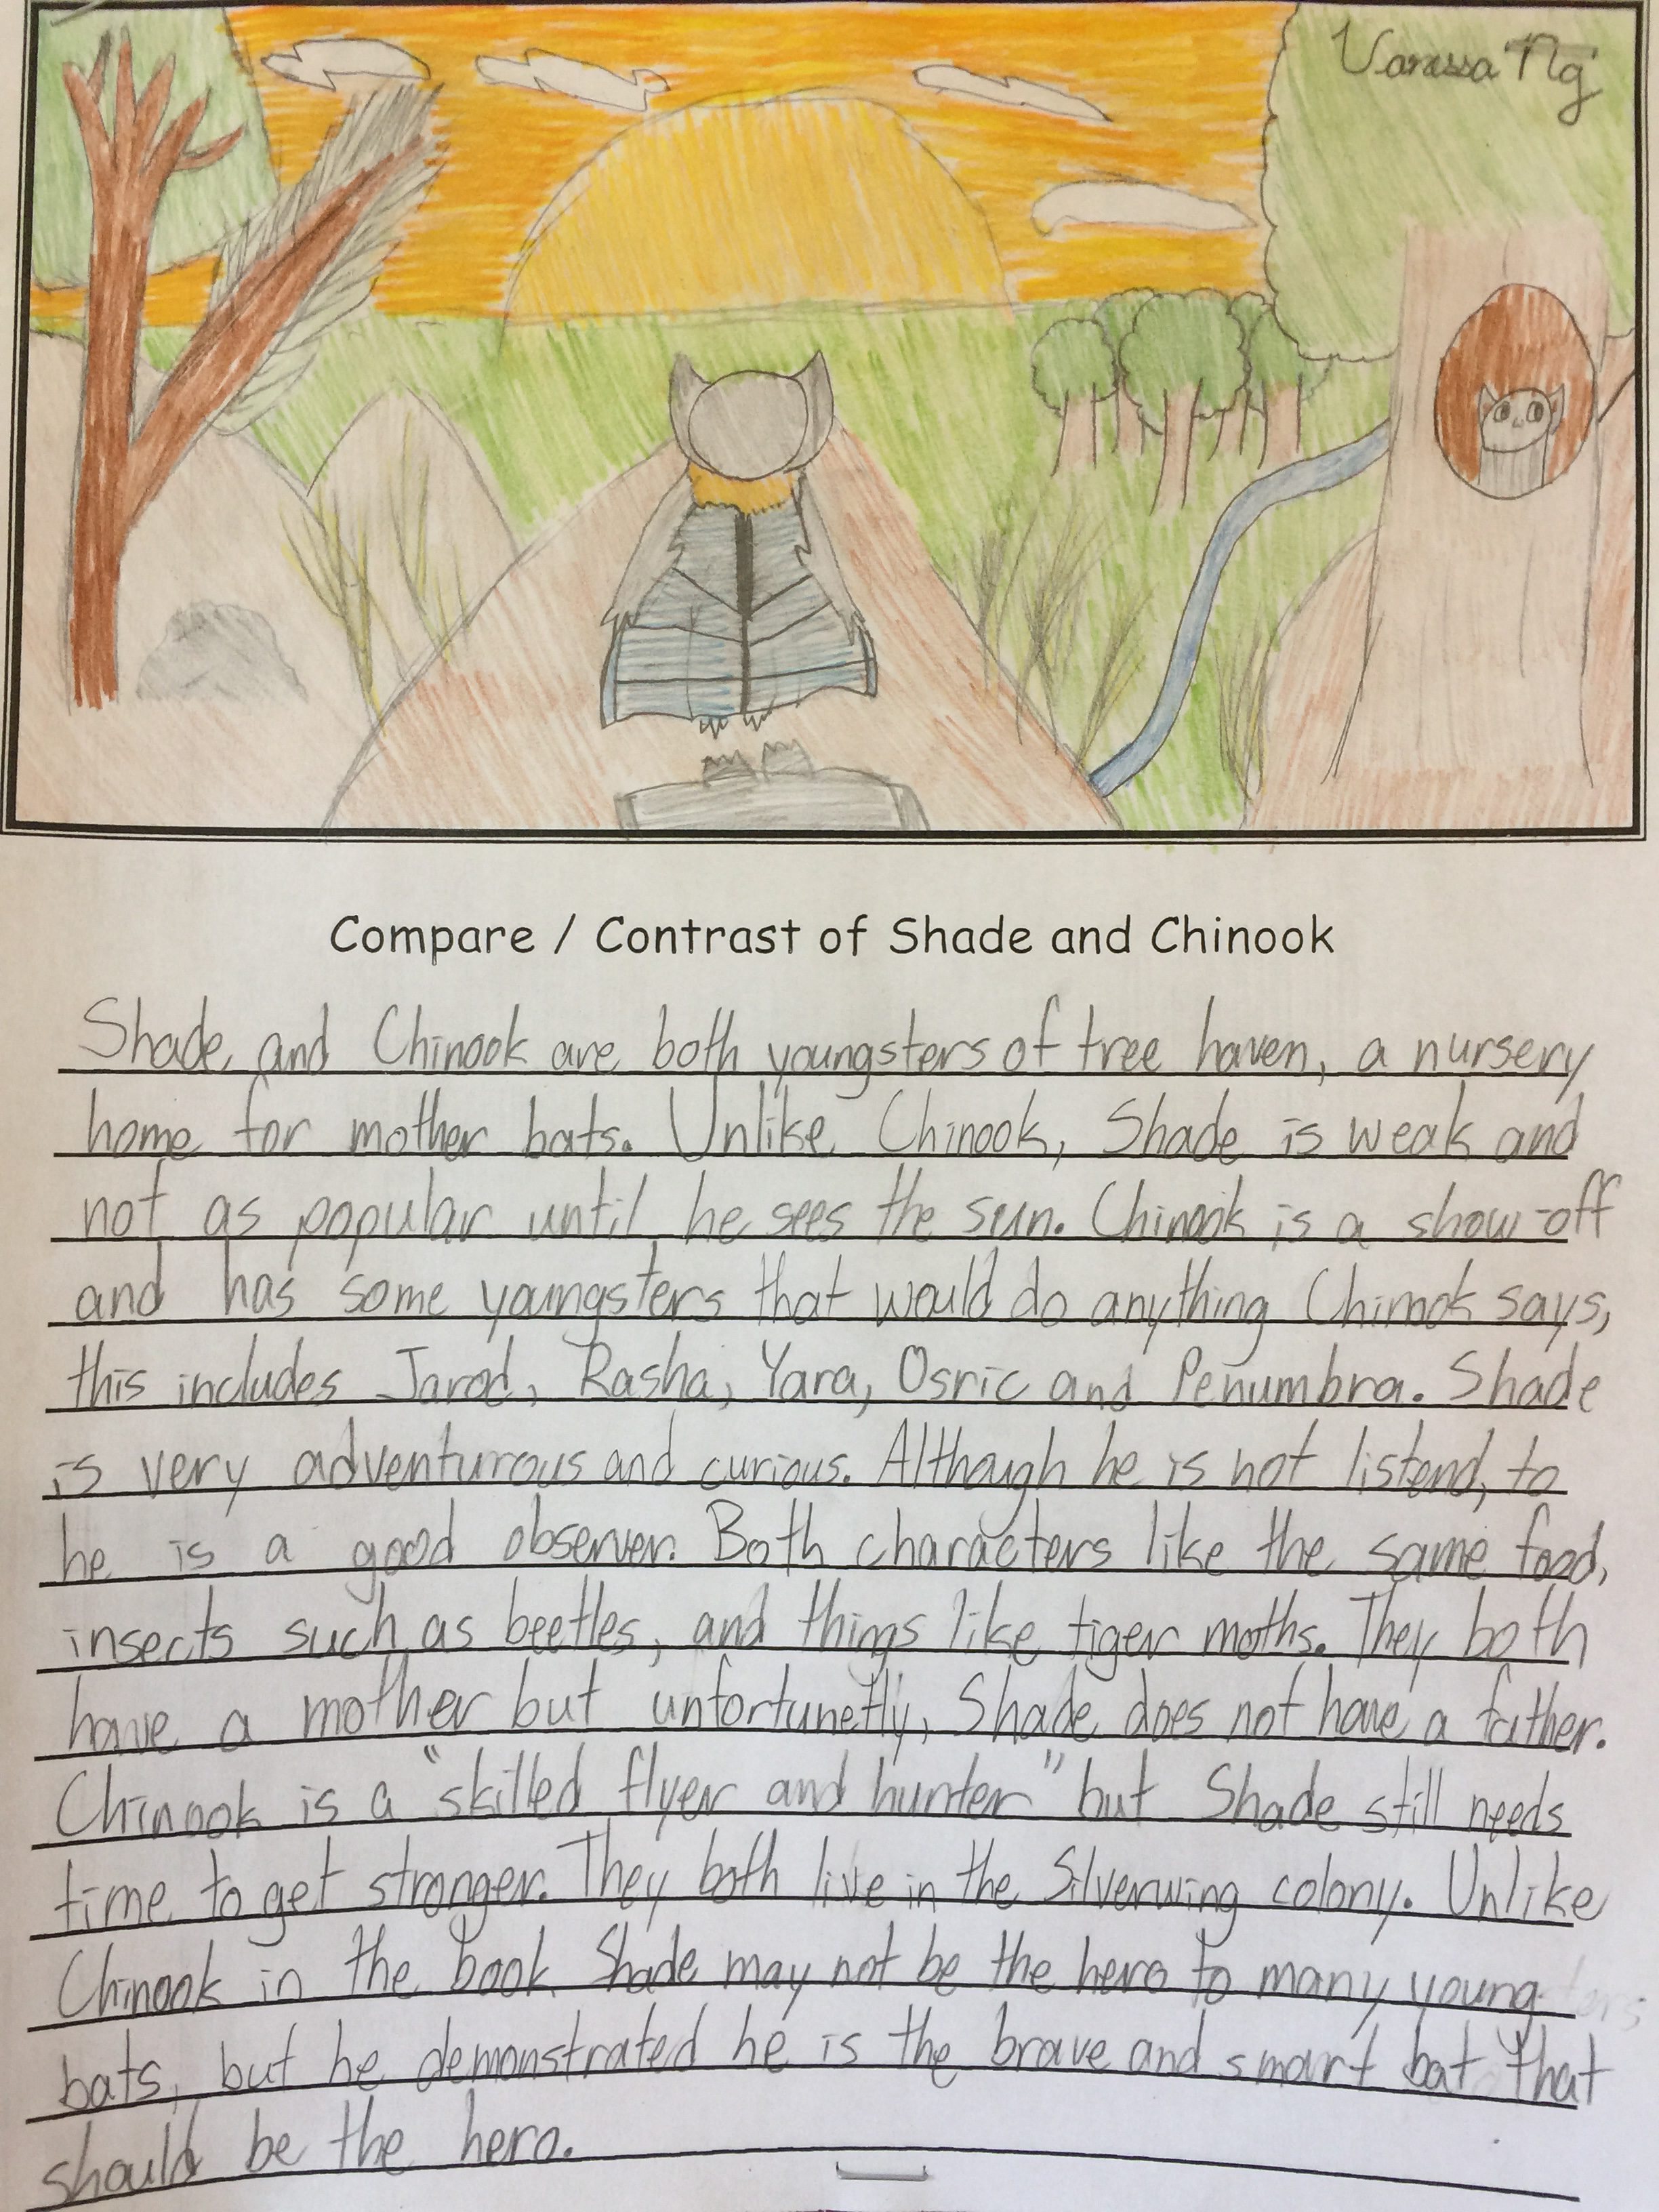 Vanessa Ng
Compare / Contrast of Shade and Chinook
Shade and Chinook are both youngsters of tree haven, a nursery
home for mother bats. Unlike Chinook, Shade is weak and
not as popular until he sees the sun. Chinook is a show-off
and has some youngsters that would do anything Chinook says,
this includes Jarod, Rasha, Yara, Osric and Penumbra. Shade
is very adventurous and curious. Although he is not listend, to
he is a good observer. Both characters like the same food,
insects such as beetles, and things like tiger moths. They both
have a mother but unfortunetly, Shade does not have a father.
Chinook is a "skilled flyer and hunter" but Shade still needs
time to get stronger. They both live in the Silverwing colony. Unlike
Chinook in the book Shade may not be the hero to many young
bats, but he demonstrated he is the brave and smart bat that
should be the hero.